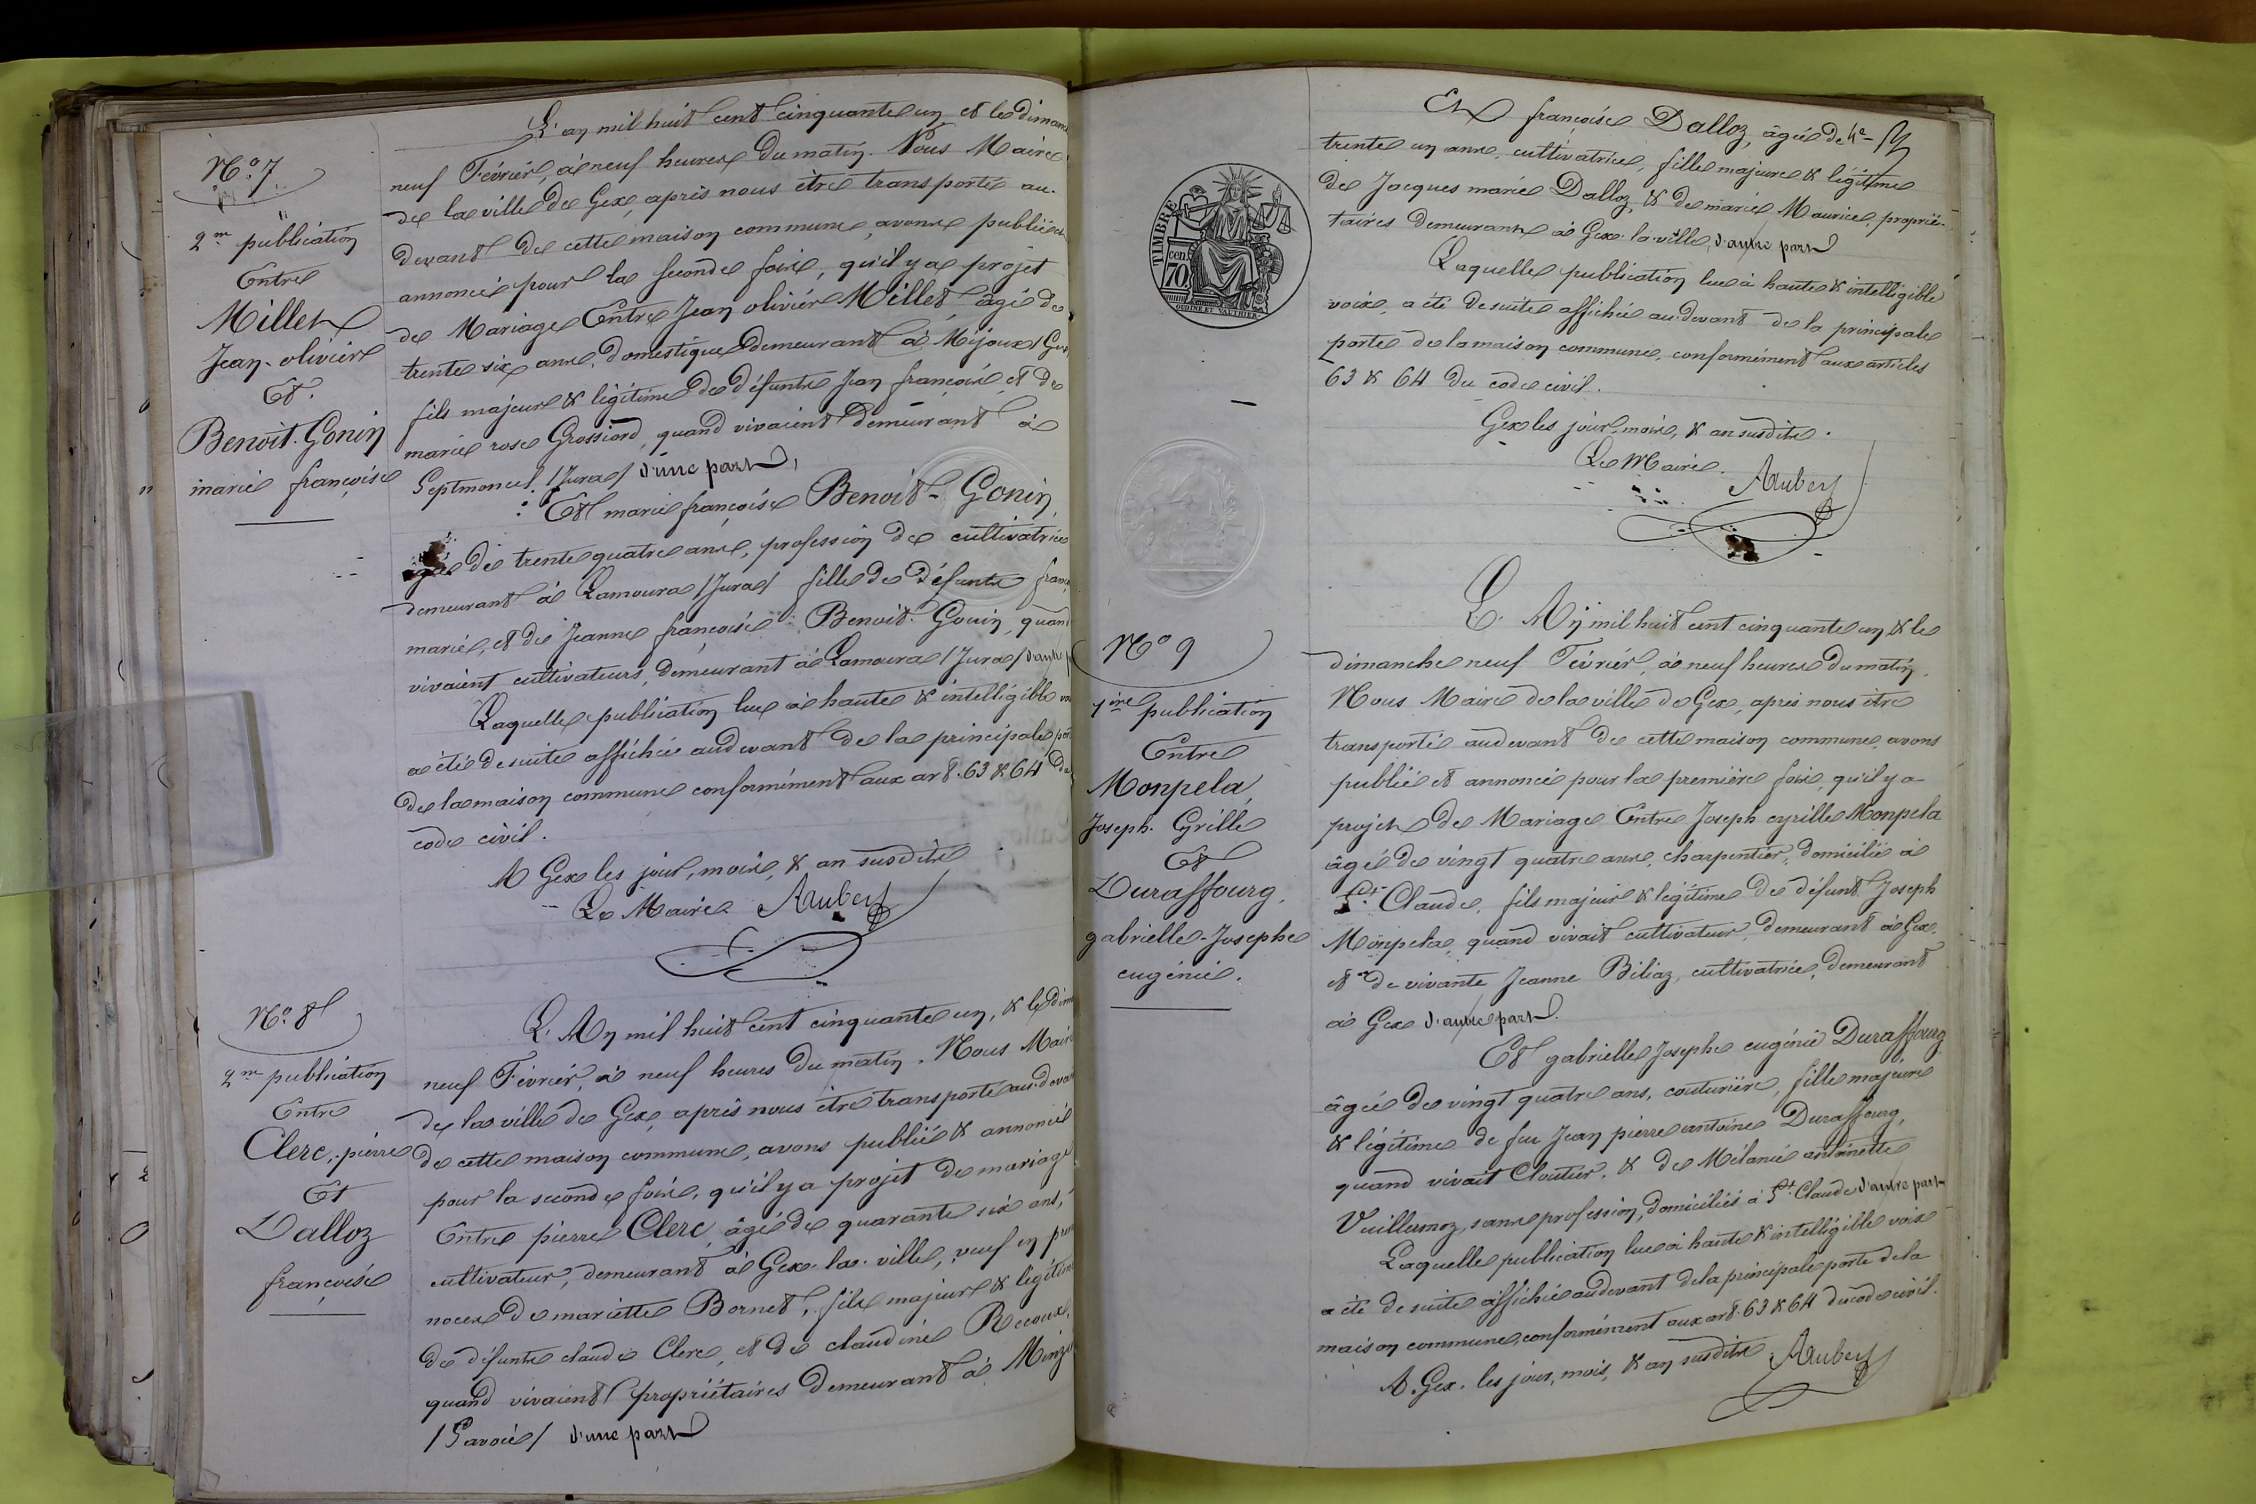 N.º 7
2.me publication
Entre
Millet
Jean-olivier
Et.
Benoit-Gonin
marie françoise
L'an mil huit cent cinquante un et le diman
neuf Février, à neuf heures du matin. Nous Maire
de la ville de Gex, après nous être transporté au-
devant de cette maison commune, avons publié et
annoncé pour la seconde fois, qu'il y a projet
de Mariage Entre Jean olivier Millet, âgé de
trente six ans, domestique demeurant à Mijoux / Gex
fils majeur & légitime de défunts Jean françois, et de
marie rose Grossiord, quand vivaient demeurant à
Septmoncel / Jura / d'une part,
Et marie françoise Benoit-Gonin,
âgée de trente quatre ans, profession de cultivatrice
demeurant à Lamoura / Jura / fille de défunts franç
marie, et de Jeanne françoise Benoit-Gonin, quand
vivaient cultivateurs, demeurant à Lamoura / Jura / d'autre p
Laquelle publication lue à haute & intelligible voi
a été de suite affichée audevant de la principale por
de la maison commune conformément aux art. 63 & 64 du
code civil.
A Gex les jour, mois, & an susdits
Le Maire Aubery
N.º 8
2.me publication
Entre
Clerc, pierre
Et
Dalloz
françoise
L'An mil huit cent cinquante un, & le dim
neuf Février, à neuf heures du matin. Nous Maire
de la ville de Gex, après nous être transporté au-devan
de cette maison commune, avons publié & annoncé
pour la seconde fois, qu'il y a projet de mariage
Entre pierre Clerc, âgé de quarante six ans,
cultivateur, demeurant à Gex-la-ville, veuf en prem
noces de mariette Bornet, fils majeur & légitim
de défunts claude Clerc, et de claudine Recoux,
quand vivaient propriétaires demeurant à Minzi
/ Savoie / d'une part
TIMBRE
70 cen.
Et françoise Dalloz, âgée de
trente un ans, cultivatrice, fille majeure & légitime
de Jacques marie Dalloz, & de marie Maurice, proprié-
taires demeurant à Gex-la-ville, d'autre part
Laquelle publication lue à haute & intelligible
voix, a été de suite affichée au-devant de la principale
porte de la maison commune, conformément aux articles
63 & 64 du code civil.
Gex les jour, mois, & an susdits.
Le Maire. Aubery
N.º 9
1ère publication
Entre
Monpela,
Joseph-Cyrille
Et
Duraffourg,
gabrielle-Josephe
eugénie.
L'An mil huit cent cinquante un & le
dimanche neuf Février, à neuf heures du matin,
Nous Maire de la ville de Gex, après nous être
transporté audevant de cette maison commune, avons
publié et annoncé pour la première fois, qu'il y a
projet de Mariage Entre Joseph cyrille Monpela
âgé de vingt quatre ans, charpentier, domicilié à
St. Claude, fils majeur & légitime de défunt Joseph
Monpela, quand vivait cultivateur, demeurant à Gex,
et de vivante Jeanne Biliaz, cultivatrice, demeurant
à Gex d'autre part.
Et gabrielle Josephe eugénie Duraffourg
âgée de vingt quatre ans, couturière, fille majeure
& légitime de feu Jean pierre antoine Duraffourg,
quand vivait Cloutier, & de Mélanie antoinette
Vuillermoz, sans profession, domiciliés à St. Claude d'autre part
Laquelle publication lue à haute & intelligible voix
a été de suite affichée audevant de la principale porte de la
maison commune, conformément aux art. 63 & 64 du code civil.
A Gex, les jour, mois, & an susdits. Aubery